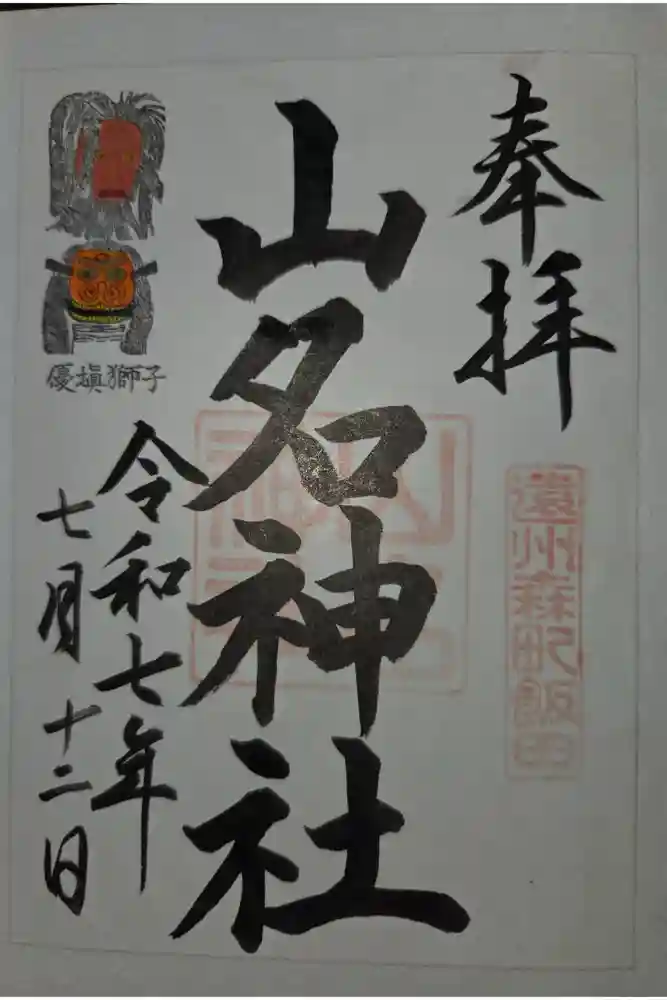 奉拝
遠州森町飯田
山名神社
優塡獅子
令和七年
七月十二日